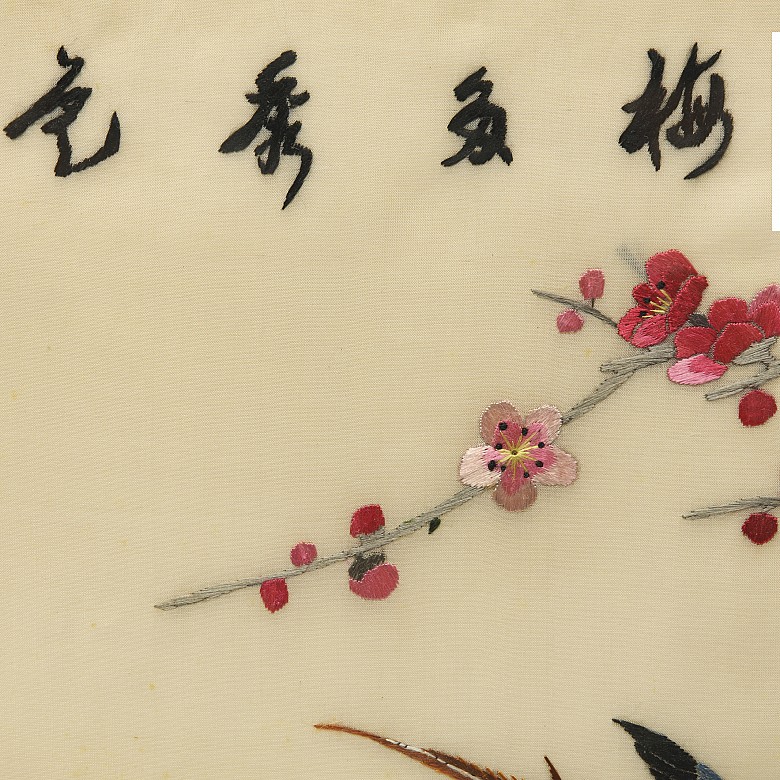 梅多秀色